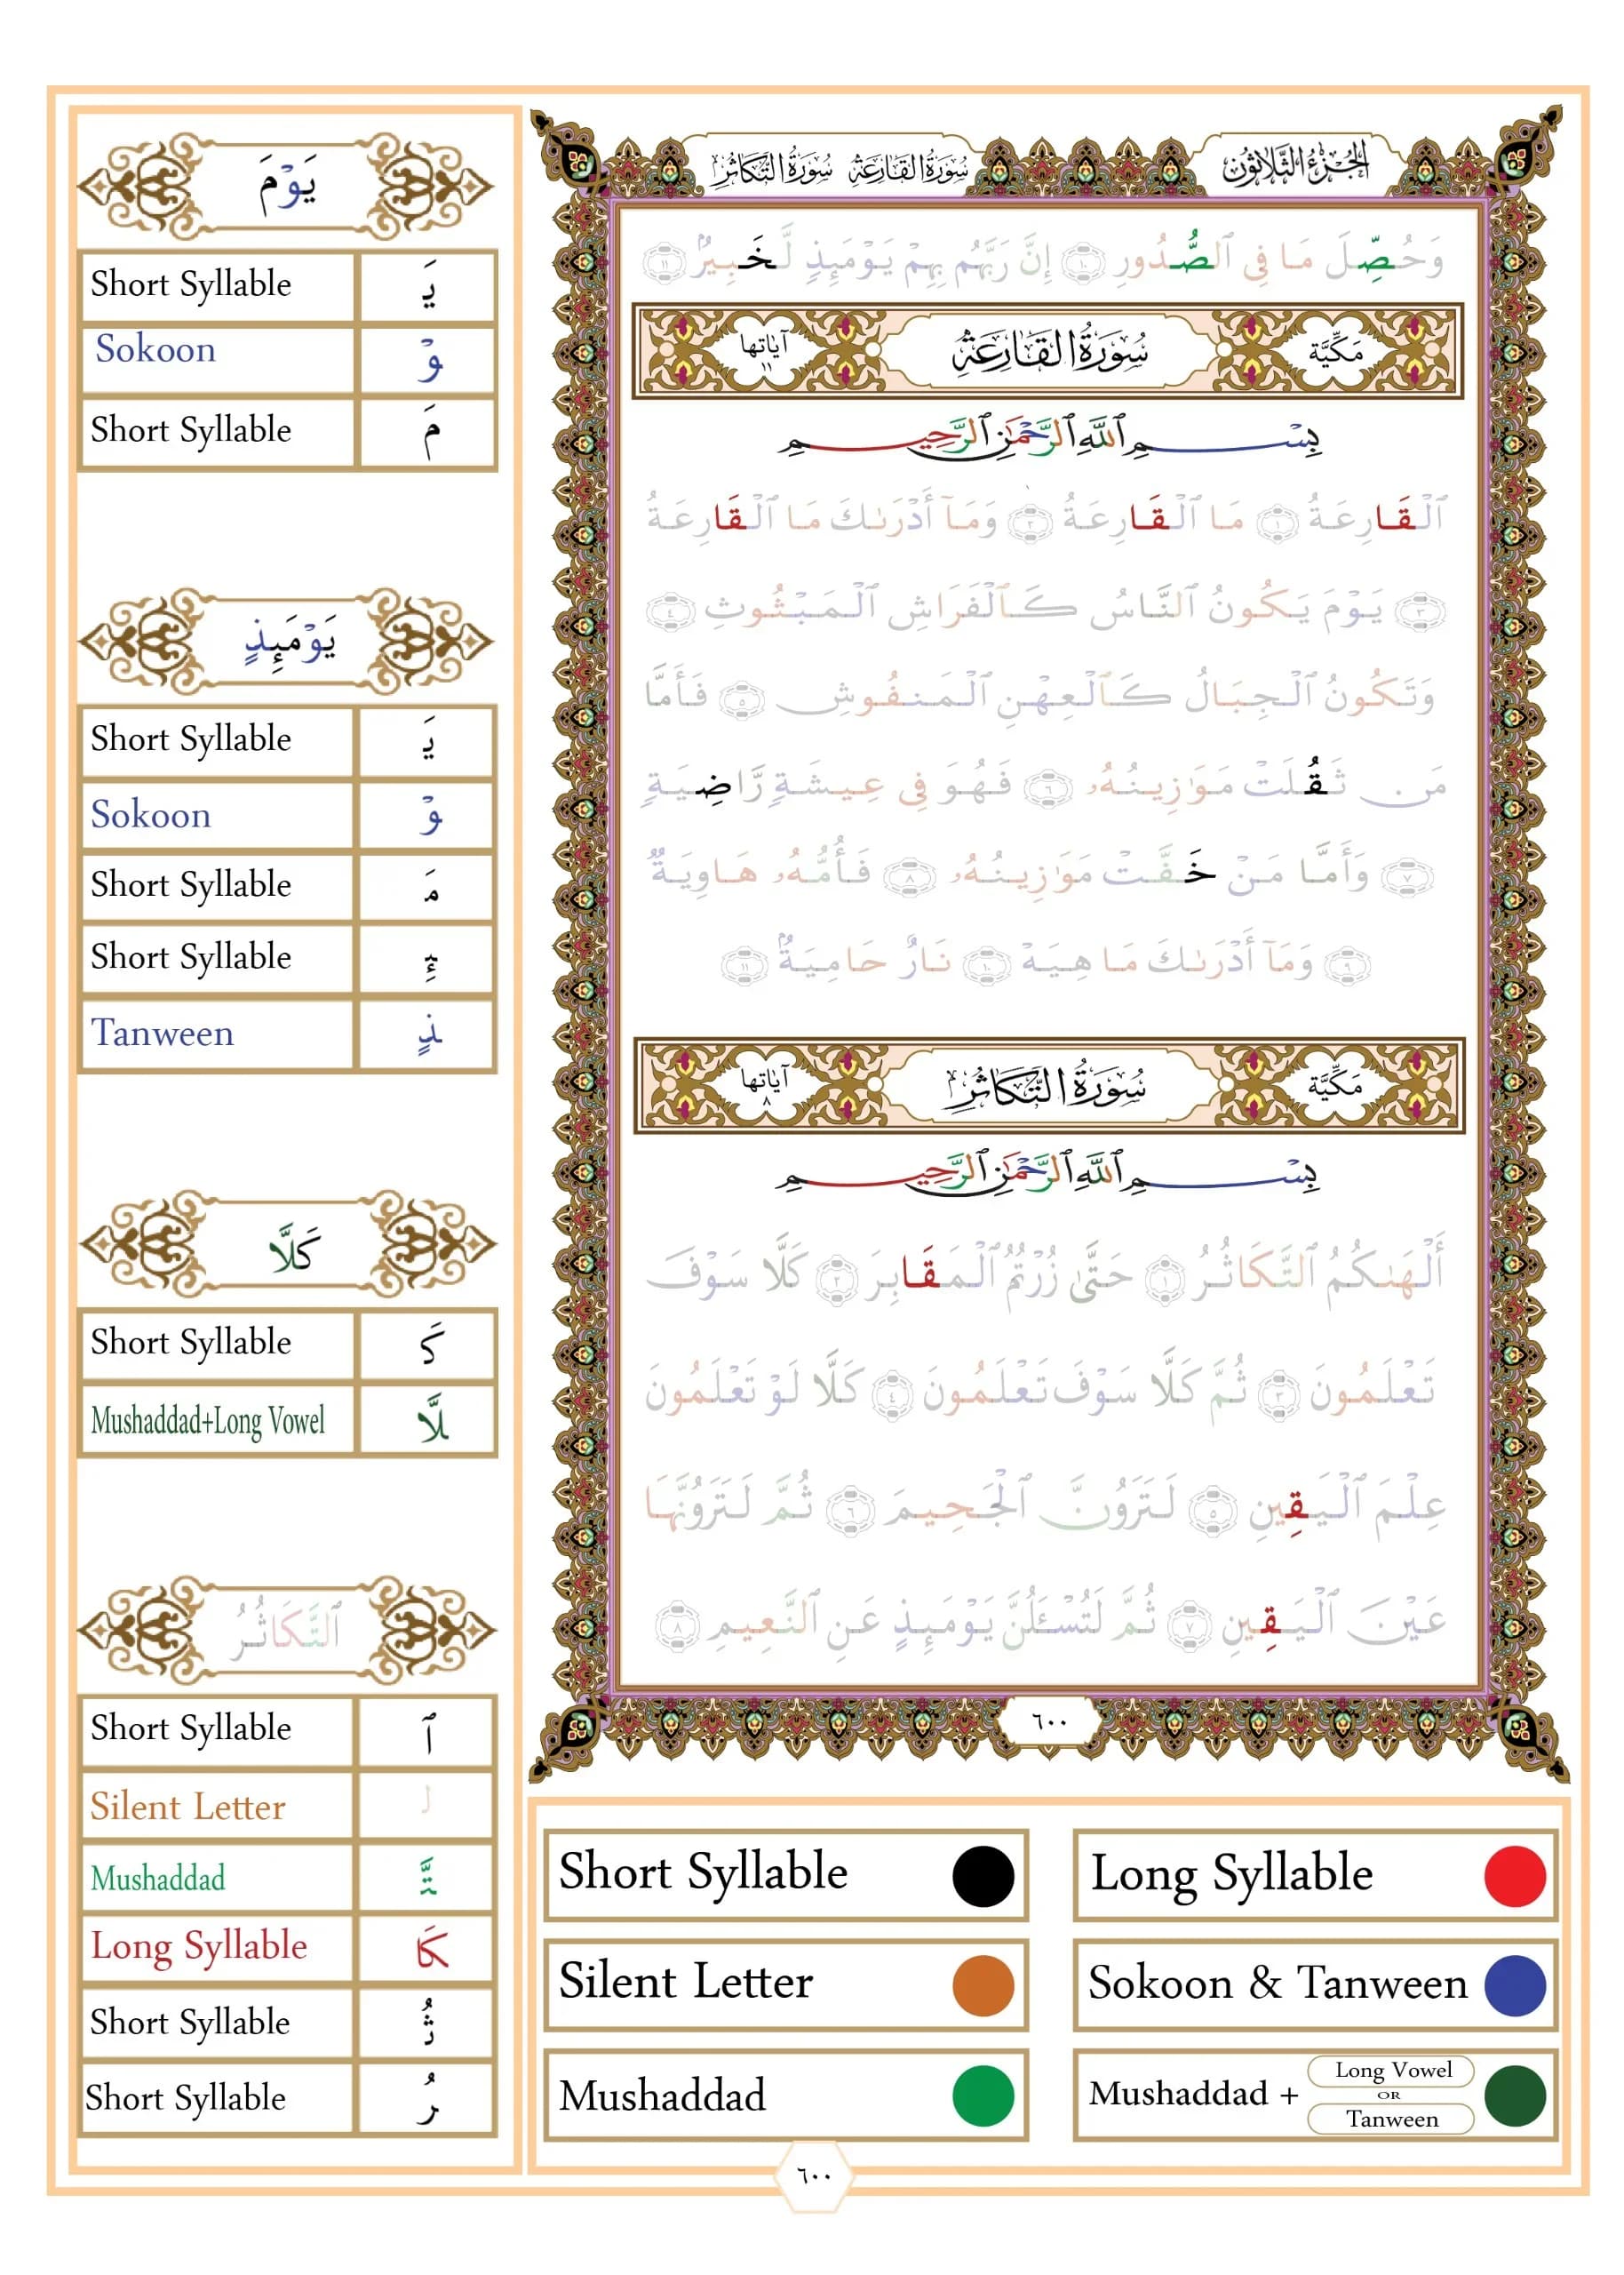 الجزء الثلاثون
سورة القارعة سورة التكاثر
وَحُصِّلَ مَا فِي ٱلصُّدُورِ ١٠ إِنَّ رَبَّهُم بِهِمْ يَوْمَئِذٍ لَّخَبِيرٌۢ ١١
مَكِّيَّة سُورَةُ القَارِعَةِ آياتها ١١
بِسْمِ ٱللَّهِ ٱلرَّحْمَٰنِ ٱلرَّحِيمِ
ٱلْقَارِعَةُ ١ مَا ٱلْقَارِعَةُ ٢ وَمَآ أَدْرَىٰكَ مَا ٱلْقَارِعَةُ
٣ يَوْمَ يَكُونُ ٱلنَّاسُ كَٱلْفَرَاشِ ٱلْمَبْثُوثِ ٤
وَتَكُونُ ٱلْجِبَالُ كَٱلْعِهْنِ ٱلْمَنفُوشِ ٥ فَأَمَّا
مَن ثَقُلَتْ مَوَٰزِينُهُۥ ٦ فَهُوَ فِي عِيشَةٍ رَّاضِيَةٍ
٧ وَأَمَّا مَنْ خَفَّتْ مَوَٰزِينُهُۥ ٨ فَأُمُّهُۥ هَاوِيَةٌ
٩ وَمَآ أَدْرَىٰكَ مَا هِيَهْ ١٠ نَارٌ حَامِيَةٌۢ ١١
مَكِّيَّة سُورَةُ التَّكَاثُرِ آياتها ٨
بِسْمِ ٱللَّهِ ٱلرَّحْمَٰنِ ٱلرَّحِيمِ
أَلْهَىٰكُمُ ٱلتَّكَاثُرُ ١ حَتَّىٰ زُرْتُمُ ٱلْمَقَابِرَ ٢ كَلَّا سَوْفَ
تَعْلَمُونَ ٣ ثُمَّ كَلَّا سَوْفَ تَعْلَمُونَ ٤ كَلَّا لَوْ تَعْلَمُونَ
عِلْمَ ٱلْيَقِينِ ٥ لَتَرَوُنَّ ٱلْجَحِيمَ ٦ ثُمَّ لَتَرَوُنَّهَا
عَيْنَ ٱلْيَقِينِ ٧ ثُمَّ لَتُسْـَٔلُنَّ يَوْمَئِذٍ عَنِ ٱلنَّعِيمِ ٨
٦٠٠
يَوْمَ
Short Syllable يَ
Sokoon وْ
Short Syllable مَ
يَوْمَئِذٍ
Short Syllable يَ
Sokoon وْ
Short Syllable مَ
Short Syllable ئِ
Tanween ذٍ
كَلَّا
Short Syllable كَ
Mushaddad+Long Vowel لَّا
ٱلتَّكَاثُرُ
Short Syllable ٱ
Silent Letter ل
Mushaddad تَّ
Long Syllable كَا
Short Syllable ثُ
Short Syllable رُ
Short Syllable
Long Syllable
Silent Letter
Sokoon & Tanween
Mushaddad
Mushaddad + Long Vowel OR Tanween
٦٠٠